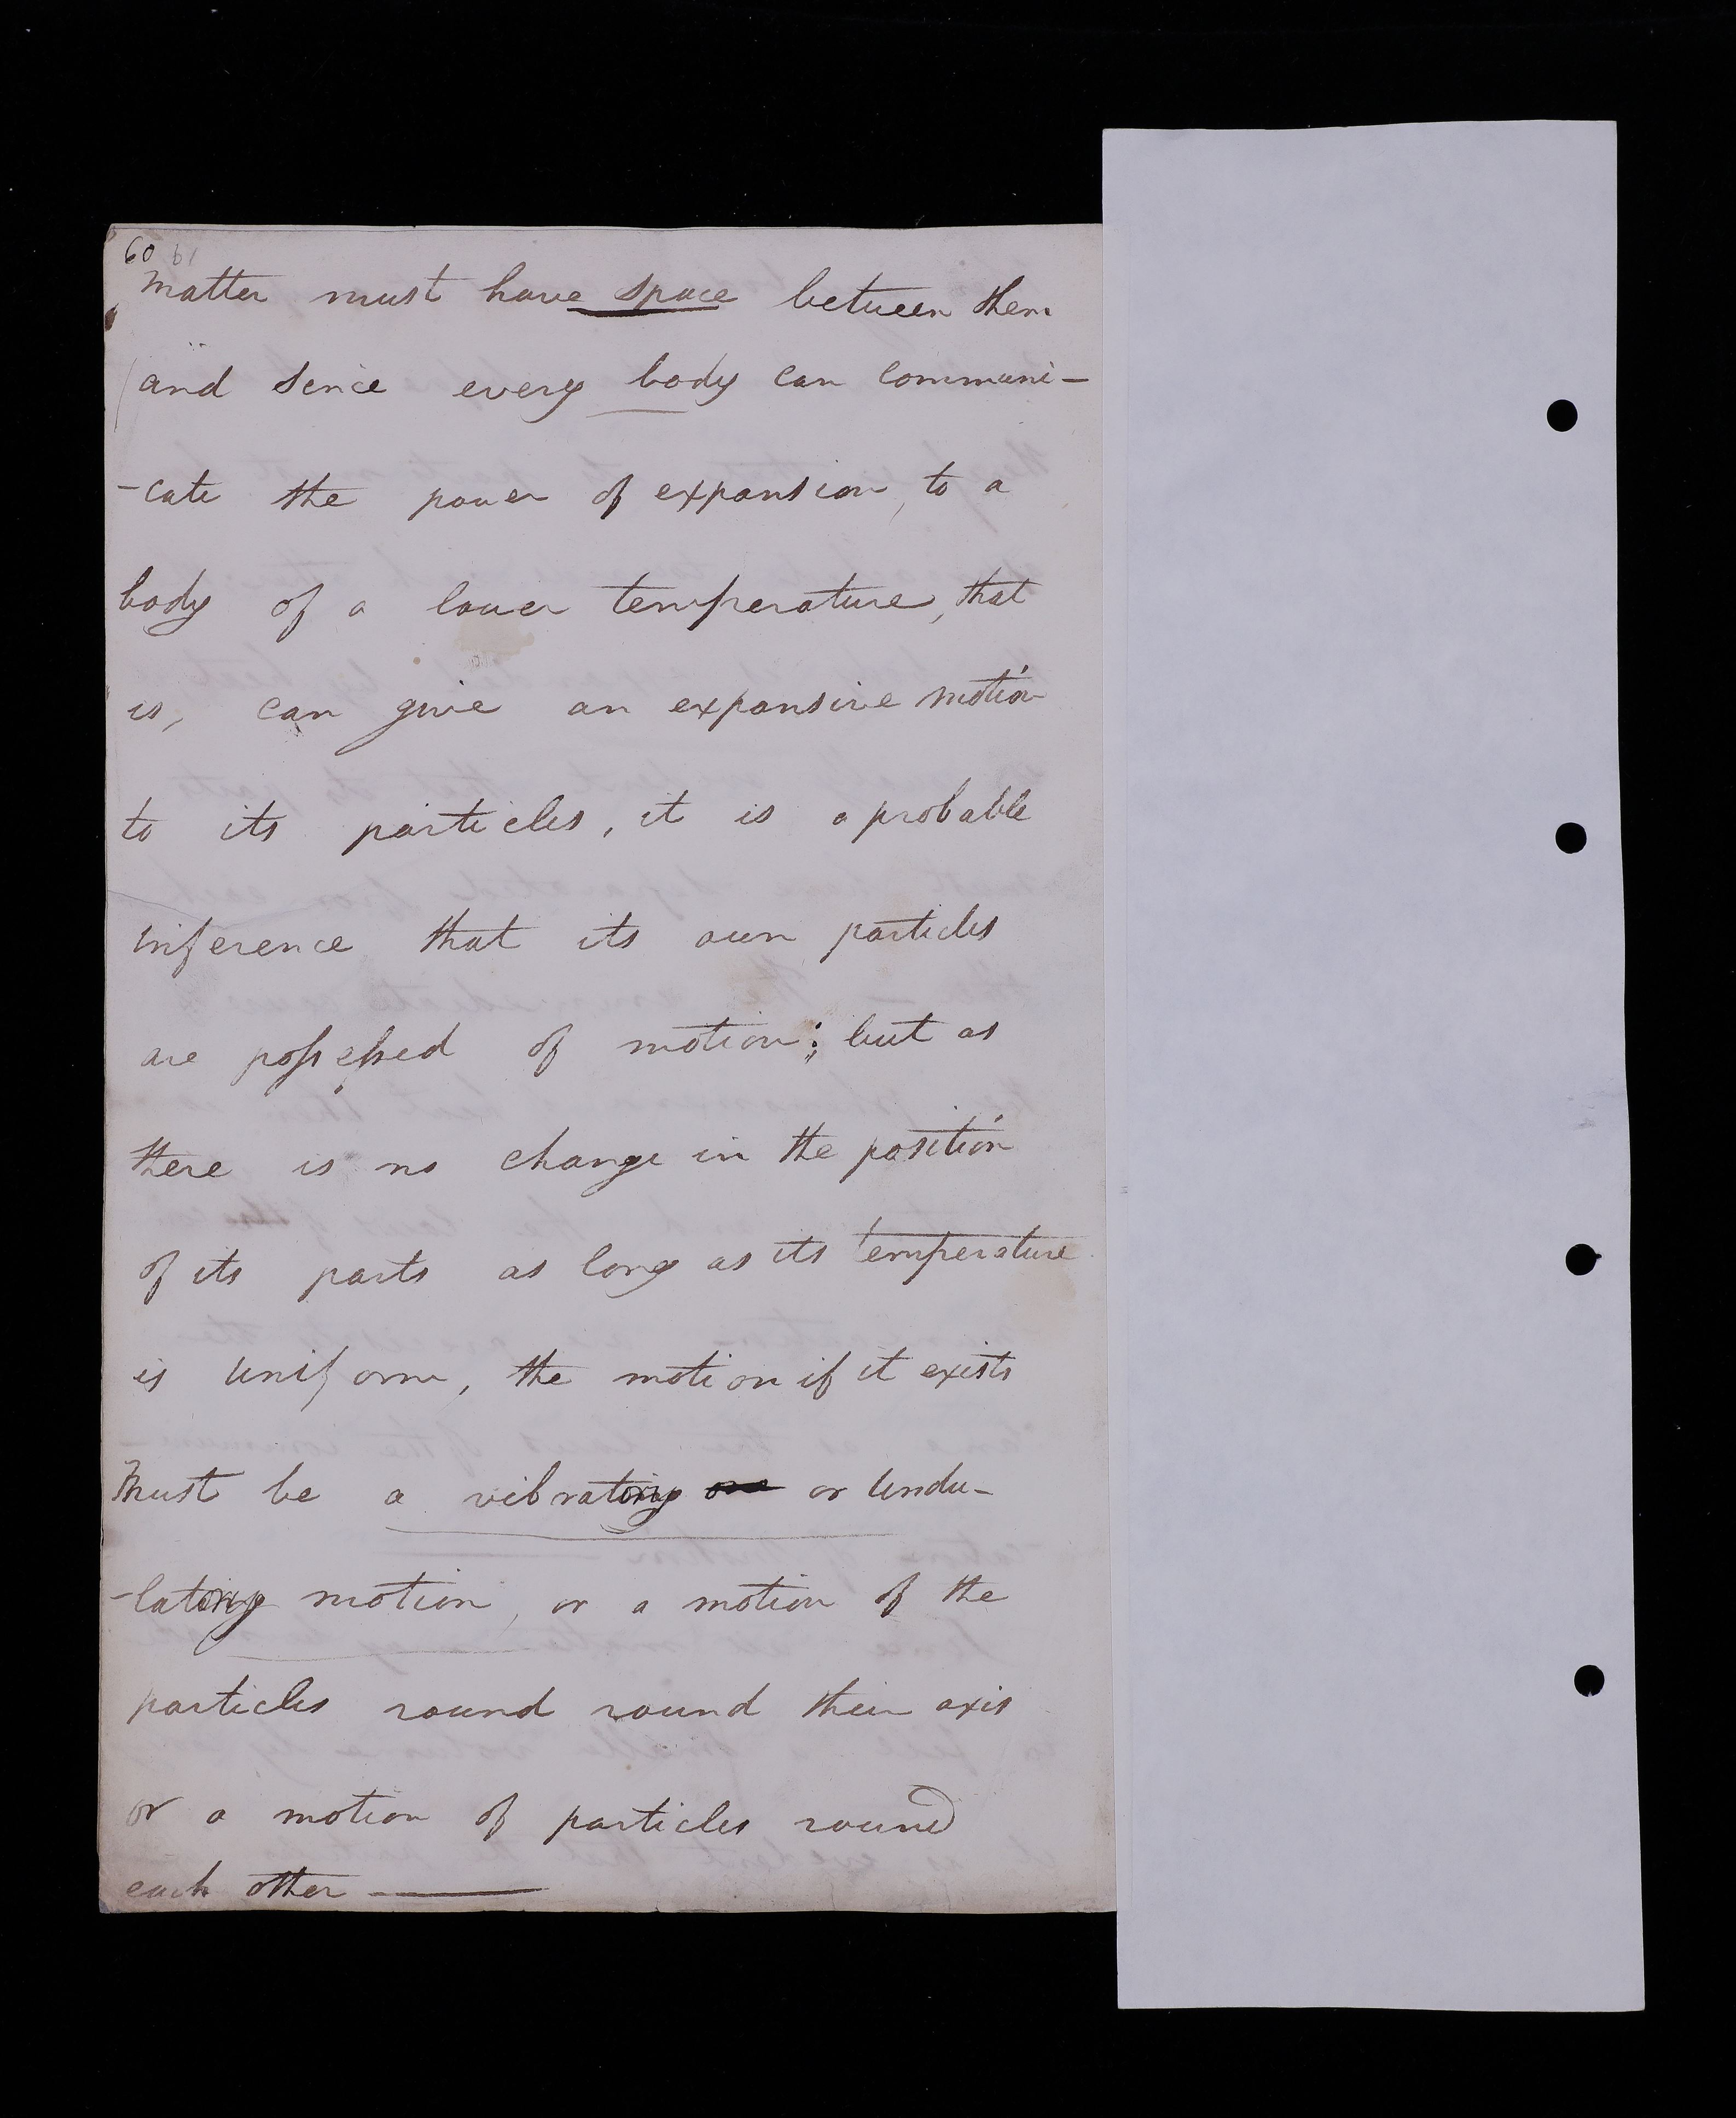 60 61
Matter must have space between them
and since every body can communi-
-cate the power of expansion, to a
body of a lower temperature, that
is, can give an expansive motion
to its particles, it is a probable
inference that its own particles
are possessed of motion; but as
there is no change in the position
of its parts as long as its temperature
is uniform, the motion if it exists
Must be a vibratory one or Undu-
-latory motion, or a motion of the
particles round round their axis
or a motion of particles round
each other —